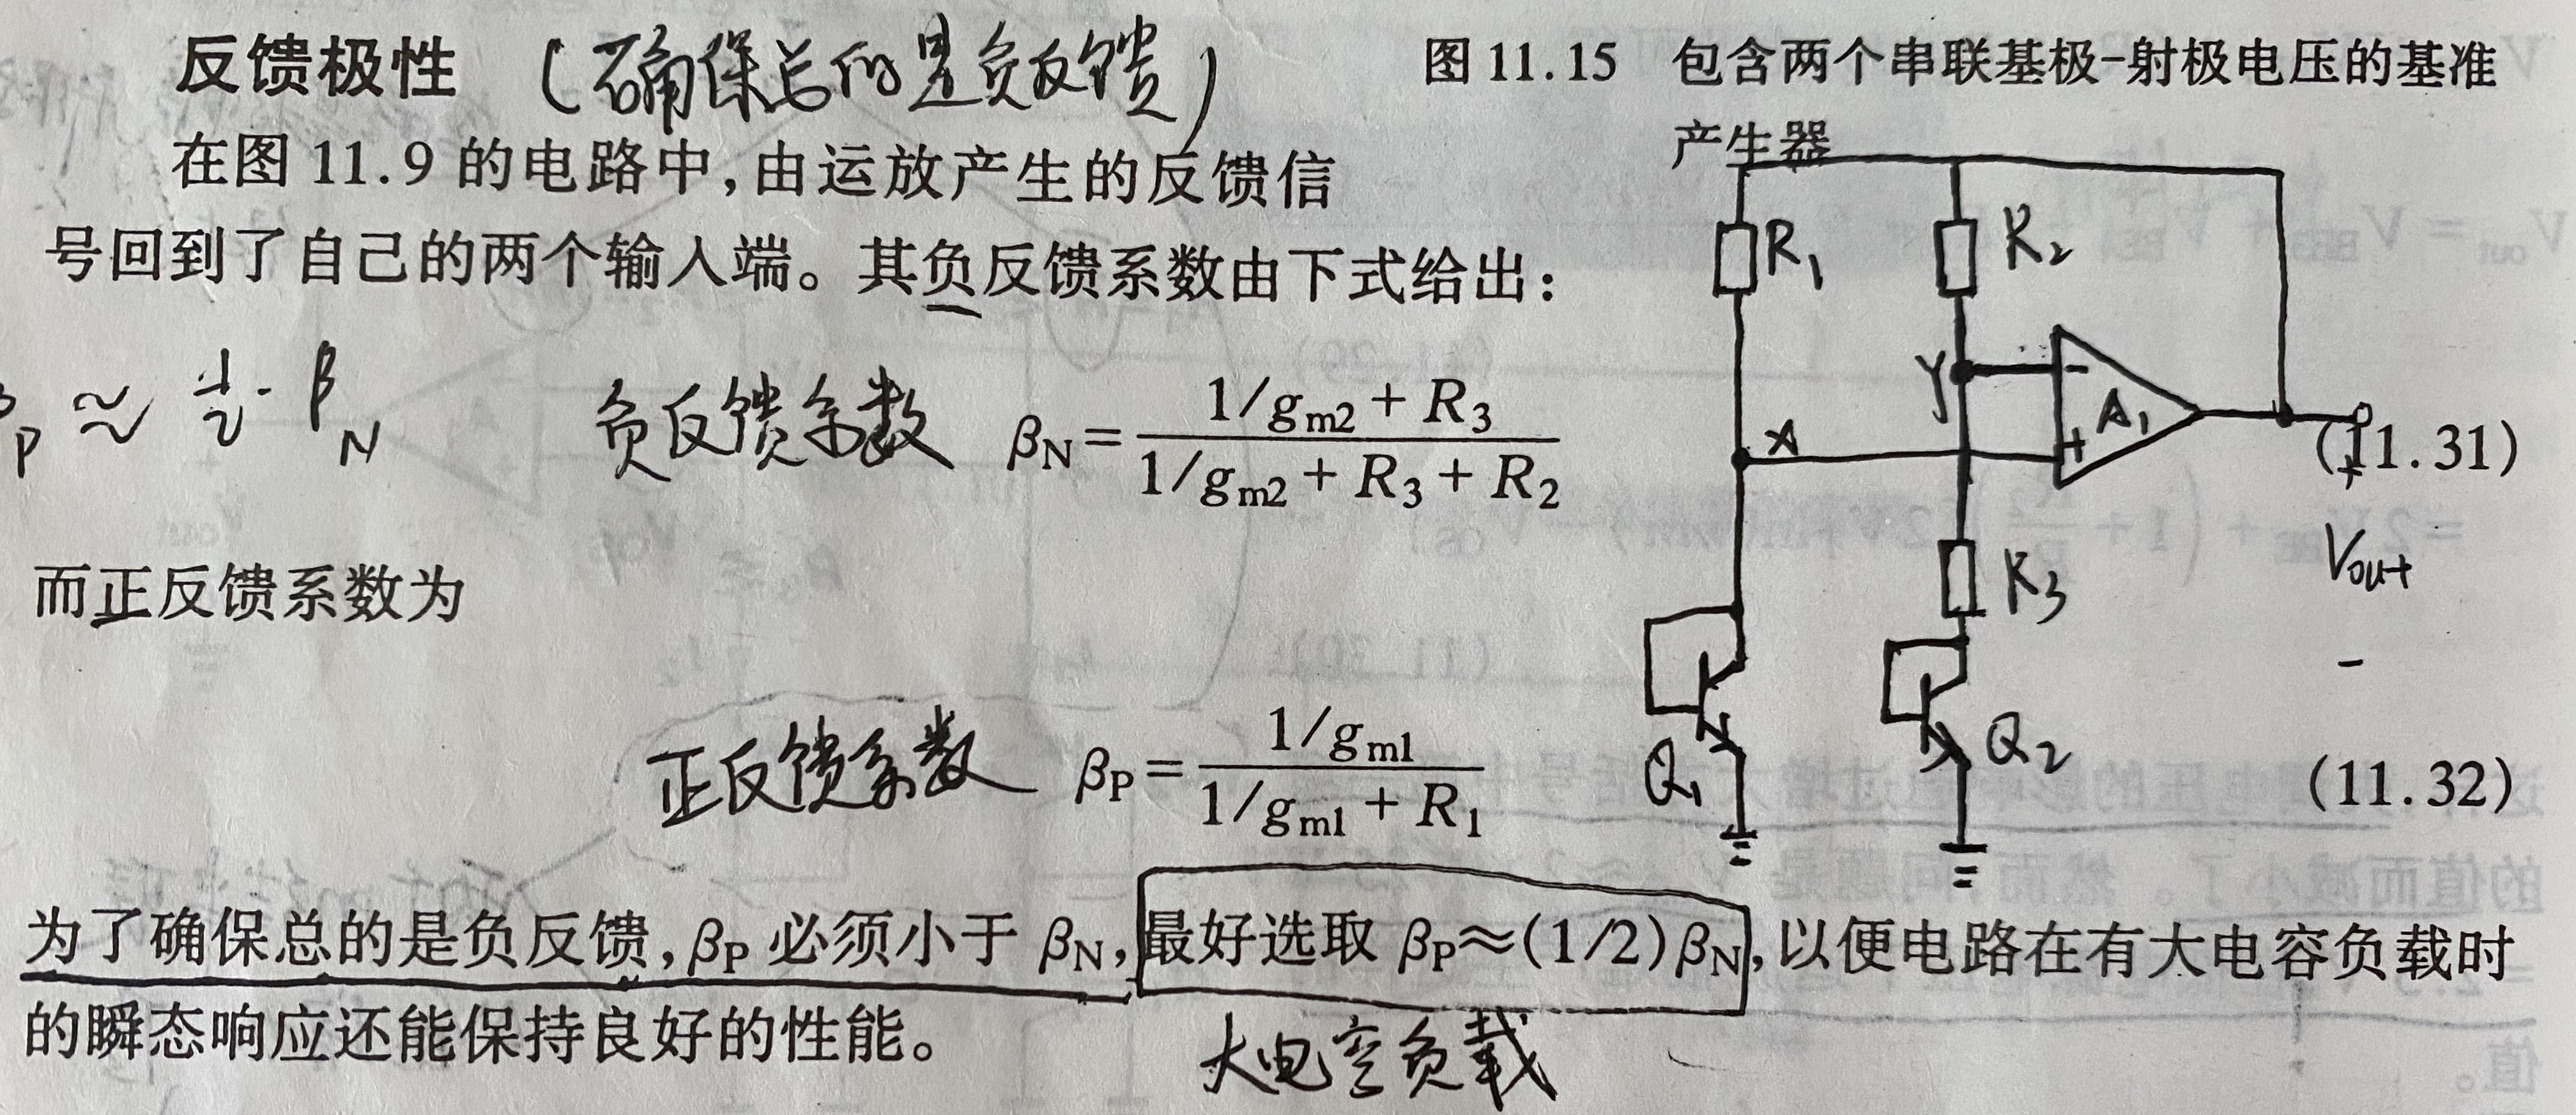 反馈极性 (确保总的是负反馈)
图 11.15 包含两个串联基极-射极电压的基准
产生器
在图 11.9 的电路中,由运放产生的反馈信
号回到了自己的两个输入端。其负反馈系数由下式给出:
R1
R2
Y
-
A1
X
+
P ≈ 1/2 · βN
负反馈系数 βN = (1/gm2 + R3) / (1/gm2 + R3 + R2) (11.31)
+
Vout
-
R3
而正反馈系数为
Q1
Q2
正反馈系数 βP = (1/gm1) / (1/gm1 + R1) (11.32)
为了确保总的是负反馈,βP 必须小于 βN,最好选取 βP≈(1/2)βN,以便电路在有大电容负载时
的瞬态响应还能保持良好的性能。
大电容负载